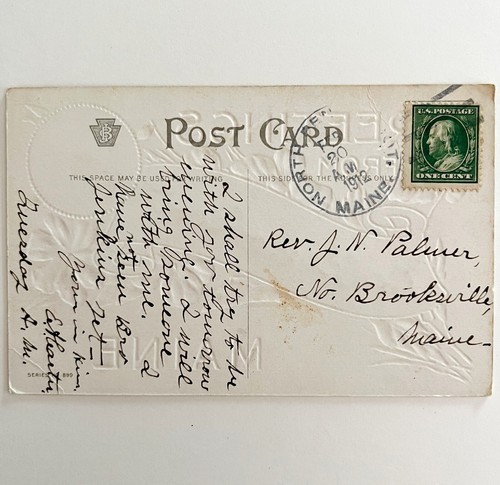 POST CARD
THIS SPACE MAY BE USED FOR WRITING
U.S. POSTAGE
ONE CENT
NORTH PEN
1912
MAINE
Rev. J. N. Palmer,
No. Brooksville,
Maine
I shall try to be
with you tomorrow
evening. I will
bring someone
with me. I
have not seen Bro
Jenkins yet
Yours in Him,
Tuesday A.M.
GREETINGS
FROM
MAINE
SERIES 890